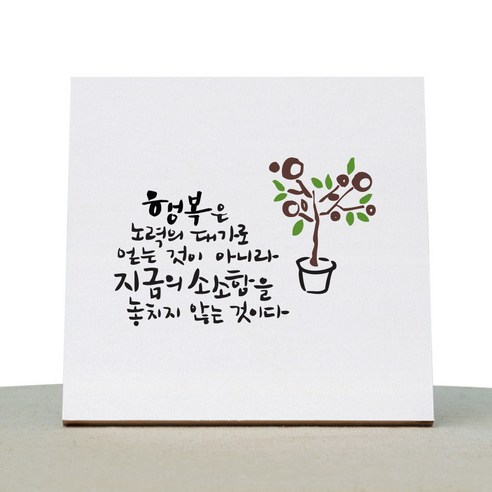 행복은
노력의 대가로
얻는 것이 아니라
지금의 소소함을
놓치지 않는 것이다